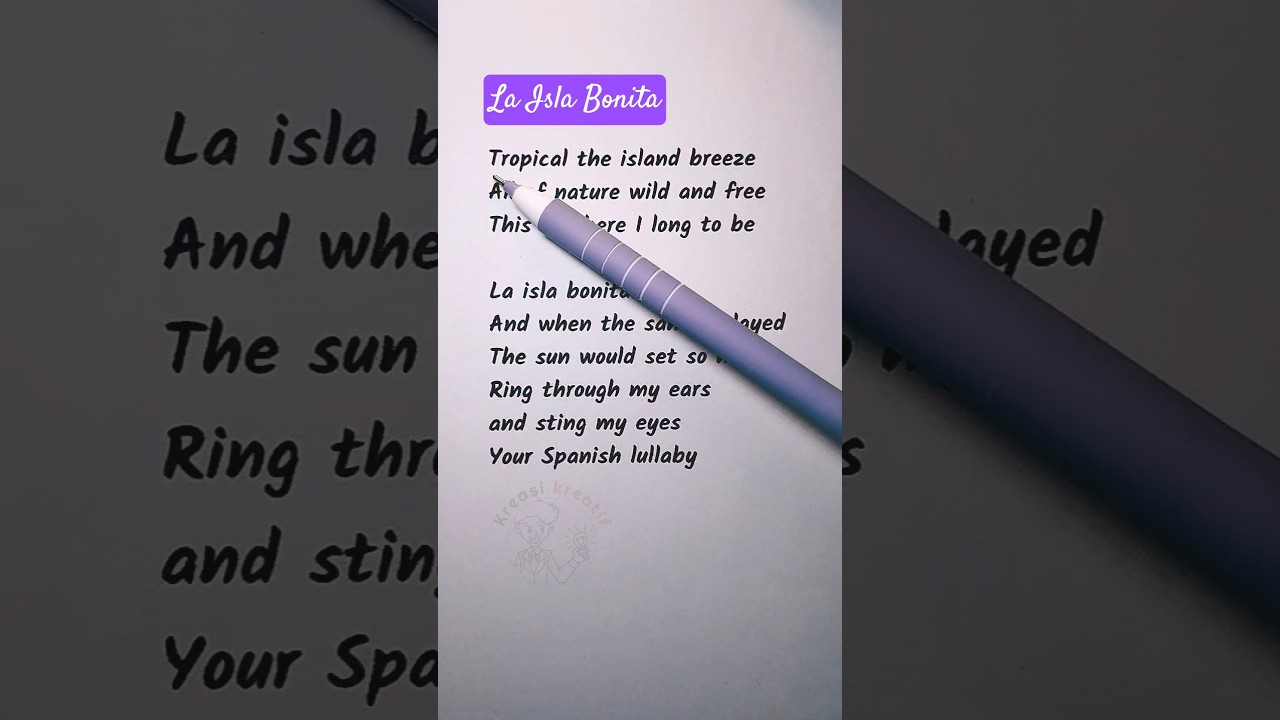 La Isla Bonita
Tropical the island breeze
nature wild and free
This I long to be
La isla bonita
And when the
The sun would set so
Ring through my ears
and sting my eyes
Your Spanish lullaby
Kreasi kreatif